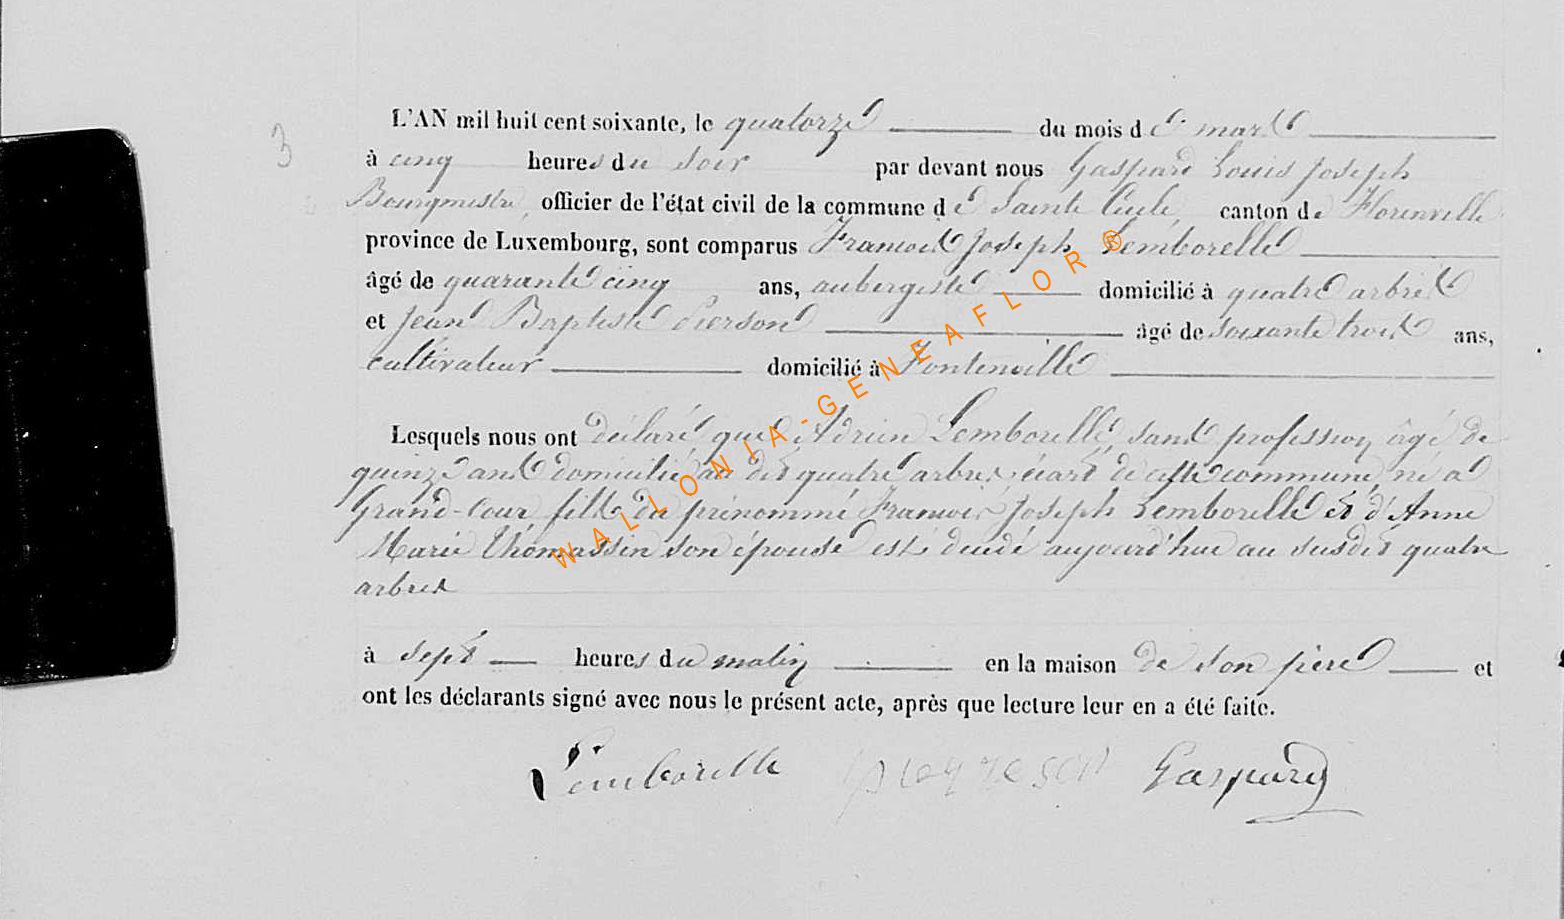 3
L'AN mil huit cent soixante, le quatorze du mois de mars
à cinq heures du soir par devant nous Gaspard Louis Joseph
Bourgmestre, officier de l'état civil de la commune de Sainte Cécile, canton de Florenville
province de Luxembourg, sont comparus Francois Joseph Lemborelle
âgé de quarante cinq ans, aubergiste domicilié à quatre arbres
et Jean Baptiste Pierson âgé de soixante trois ans,
cultivateur domicilié à Fontenoille
Lesquels nous ont déclaré que Adrien Lemborelle, sans profession, âgé de
quinze ans domicilié au dit quatre arbres, écart de cette commune, né à
Grand-Cour, fils du prénommé Francois Joseph Lemborelle et d'Anne
Marie Thomassin son épouse est décédé aujourd'hui au susdit quatre
arbres
à sept heures du matin en la maison de son père et
ont les déclarants signé avec nous le présent acte, après que lecture leur en a été faite.
Lemborelle Gaspard
WALLONIA-GENEAFLOR ®